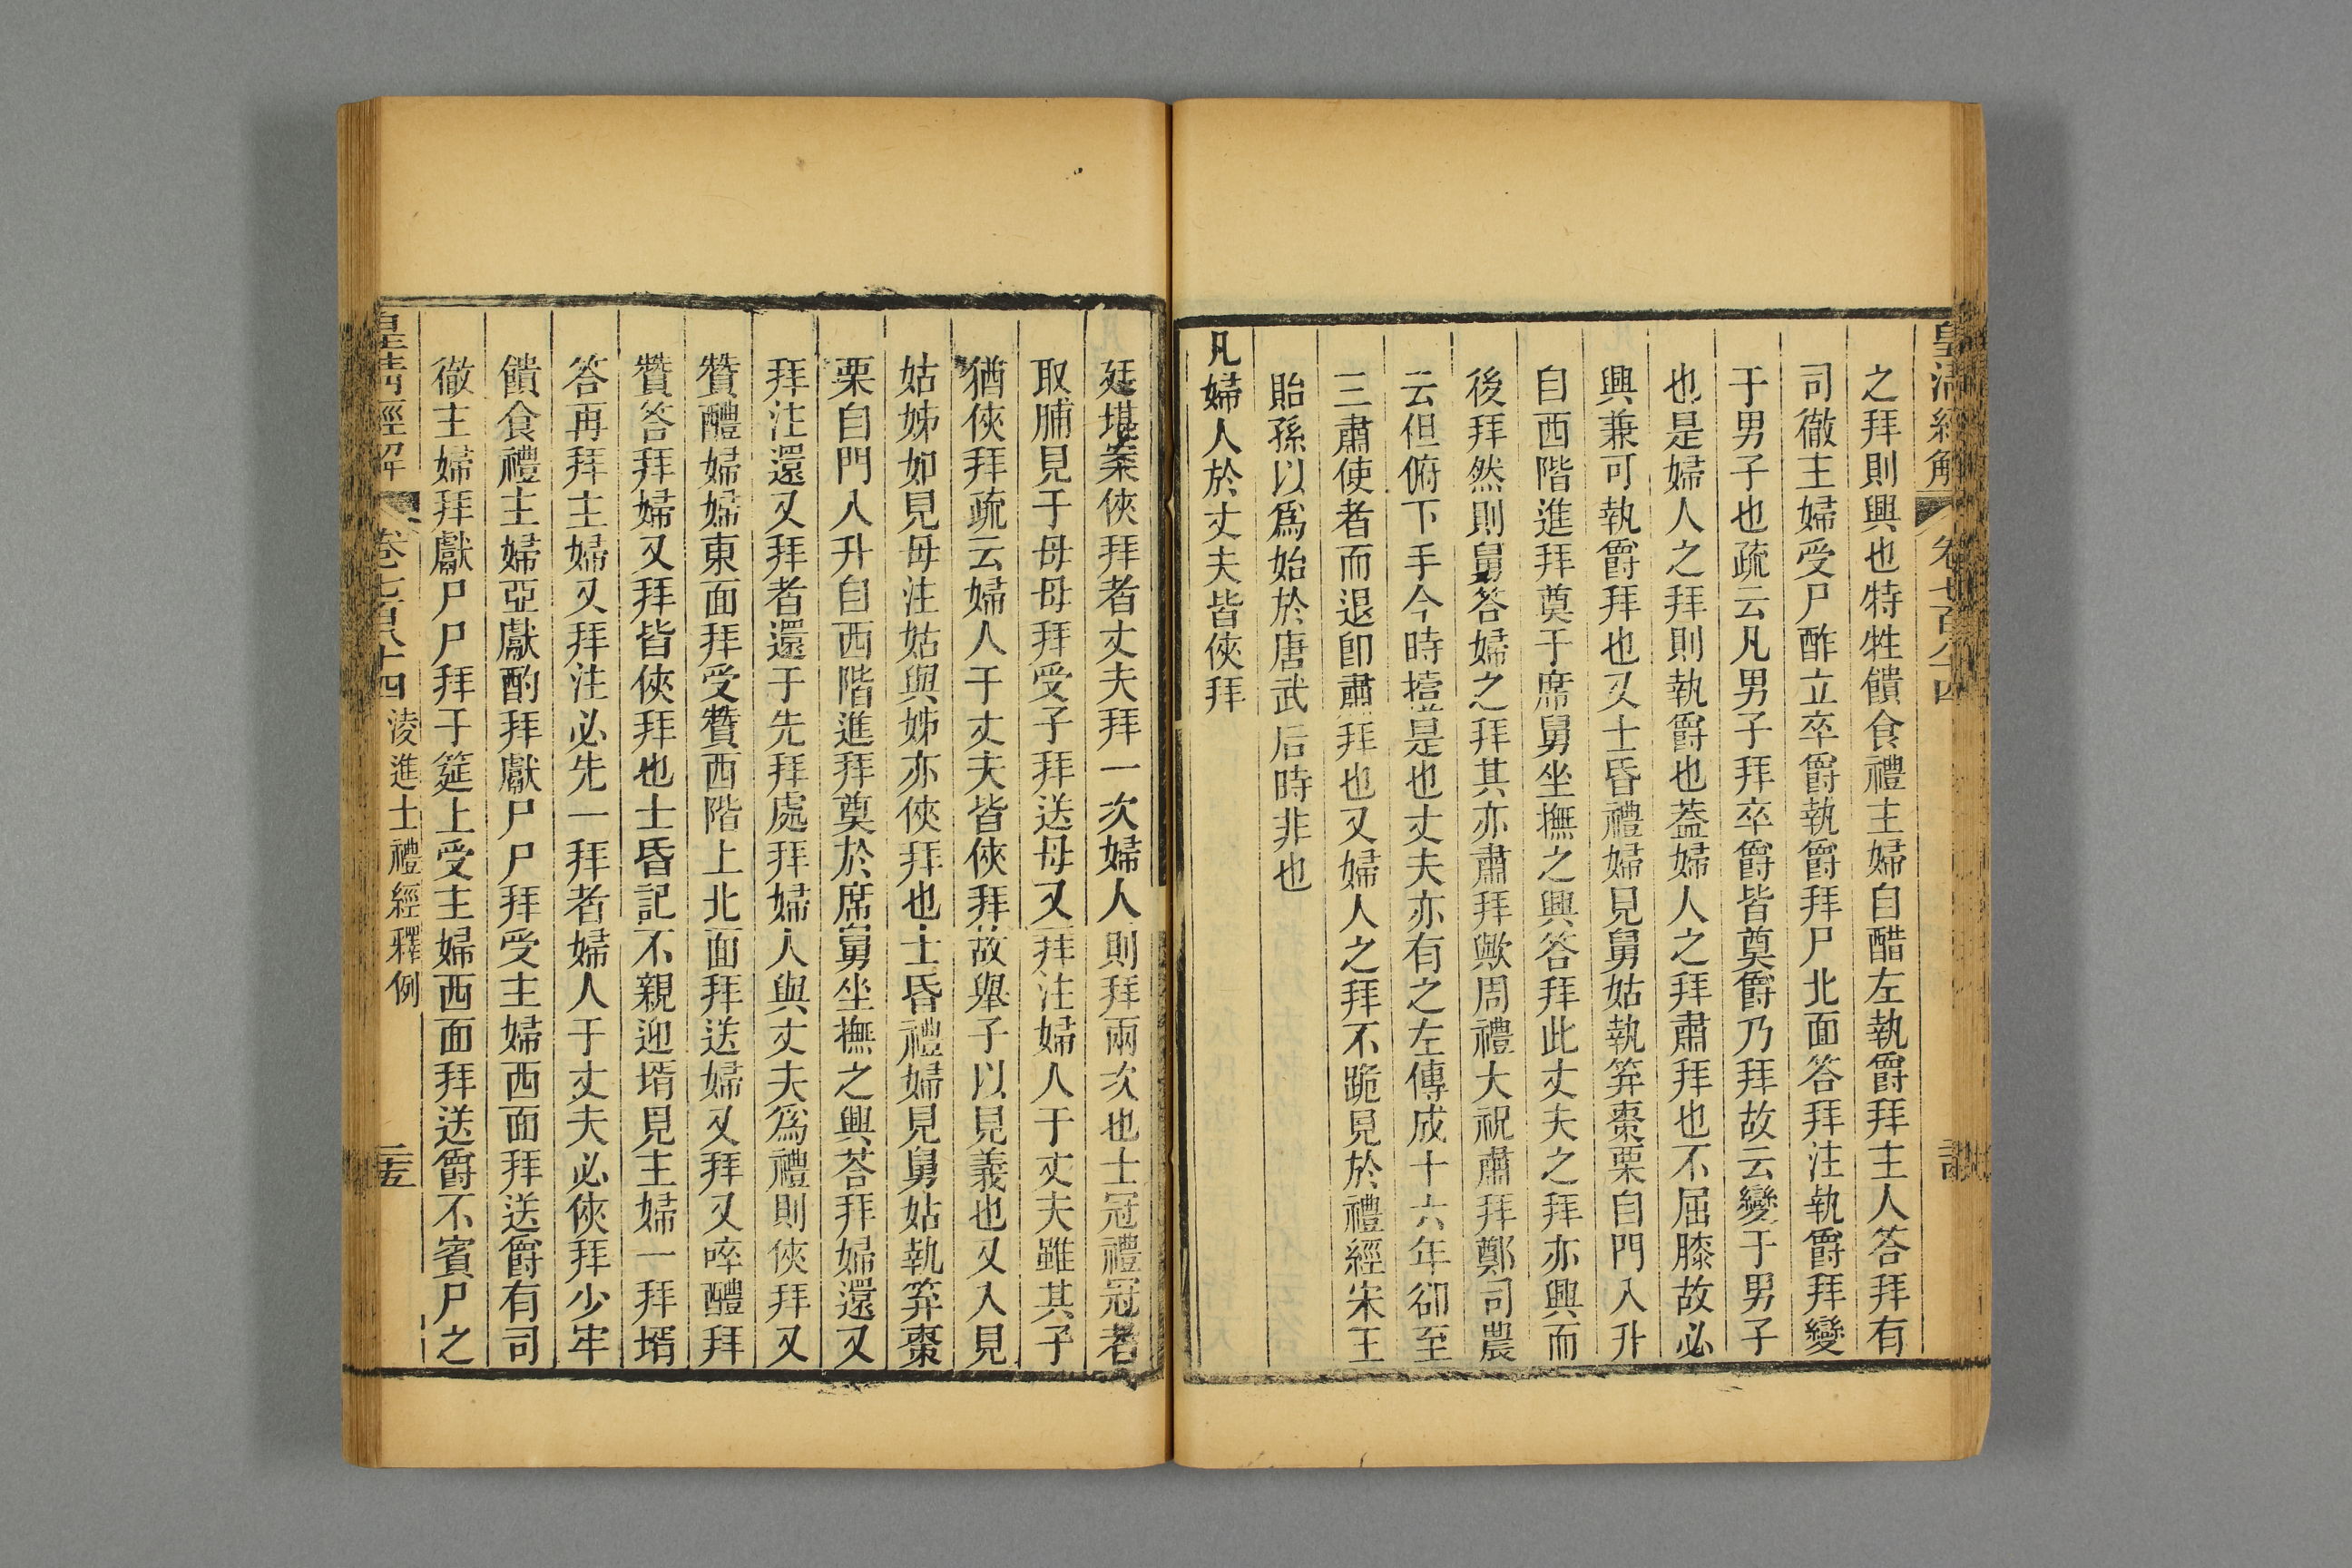 皇清經解 卷七百八十四
之拜則興也特牲饋食禮主婦自醋左執爵拜主人答拜有
司徹主婦受尸酢立卒爵執爵拜尸北面答拜注執爵拜變
于男子也疏云凡男子拜卒爵皆奠爵乃拜故云變于男子
也是婦人之拜則執爵也蓋婦人之拜肅拜也不屈膝故必
興兼可執爵拜也又士昏禮婦見舅姑執笲棗栗自門入升
自西階進拜奠于席舅坐撫之興答拜此丈夫之拜亦興而
後拜然則舅答婦之拜其亦肅拜歟周禮大祝肅拜鄭司農
云但俯下手今時撎是也丈夫亦有之左傳成十六年郤至
三肅使者而退卽肅拜也又婦人之拜不跪見於禮經宋王
貽孫以爲始於唐武后時非也
凡婦人於丈夫皆俠拜
廷堪案俠拜者丈夫拜一次婦人則拜兩次也士冠禮冠者
取脯見于母母拜受子拜送母又拜注婦人于丈夫雖其子
猶俠拜疏云婦人于丈夫皆俠拜故舉子以見義也又入見
姑姊如見母注姑與姊亦俠拜也士昏禮婦見舅姑執笲棗
栗自門入升自西階進拜奠於席舅坐撫之興荅拜婦還又
拜注還又拜者還于先拜處拜婦人與丈夫爲禮則俠拜又
贊醴婦婦東面拜受贊西階上北面拜送婦又拜又啐醴拜
贊答拜婦又拜皆俠拜也士昏記不親迎壻見主婦一拜壻
答再拜主婦又拜注必先一拜者婦人于丈夫必俠拜少牢
饋食禮主婦亞獻酌拜獻尸尸拜受主婦西面拜送爵有司
徹主婦拜獻尸尸拜于筵上受主婦西面拜送爵不賓尸之
皇清經解 卷七百八十四 淩進士禮經釋例 三五